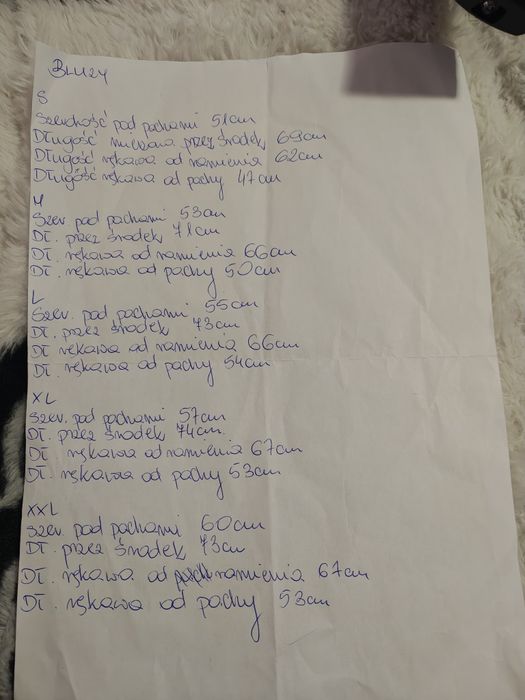 BLUZY
S
Szerokość pod pachami 51cm
Długość mierzona przez środek 69cm
Długość rękawa od ramienia 62cm
Długość rękawa od pachy 47cm
M
Szer. pod pachami 53cm
Dł. przez środek 71cm
Dł. rękawa od ramienia 66cm
Dł. rękawa od pachy 50cm
L
Szer. pod pachami 55cm
Dł. przez środek 73cm
Dł rękawa od ramienia 66cm
Dł. rękawa od pachy 54cm
XL
Szer. pod pachami 57cm
Dł. przez środek 74cm
Dł. rękawa od ramienia 67cm
Dł. rękawa od pachy 53cm
XXL
Szer. pod pachami 60cm
Dł. przez środek 73cm
Dł. rękawa od ramienia 67cm
Dł. rękawa od pachy 53cm